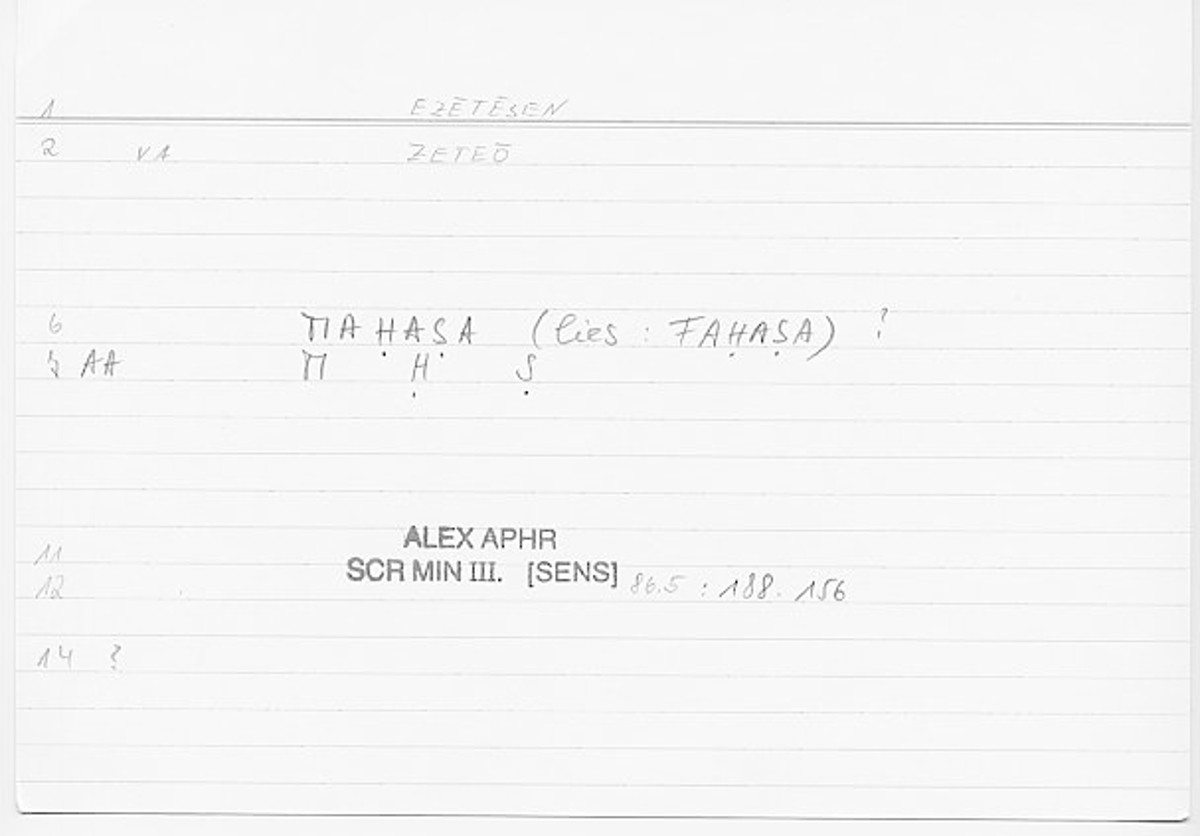 1 EZĒTĒSEN
2 VA ZĒTEŌ
6 MAḤAṢA (lies : FAḤAṢA) ?
7 AA M Ḥ Ṣ
ALEX APHR
11
SCR MIN III. [SENS] 86.5 : 188. 156
12
14 ?